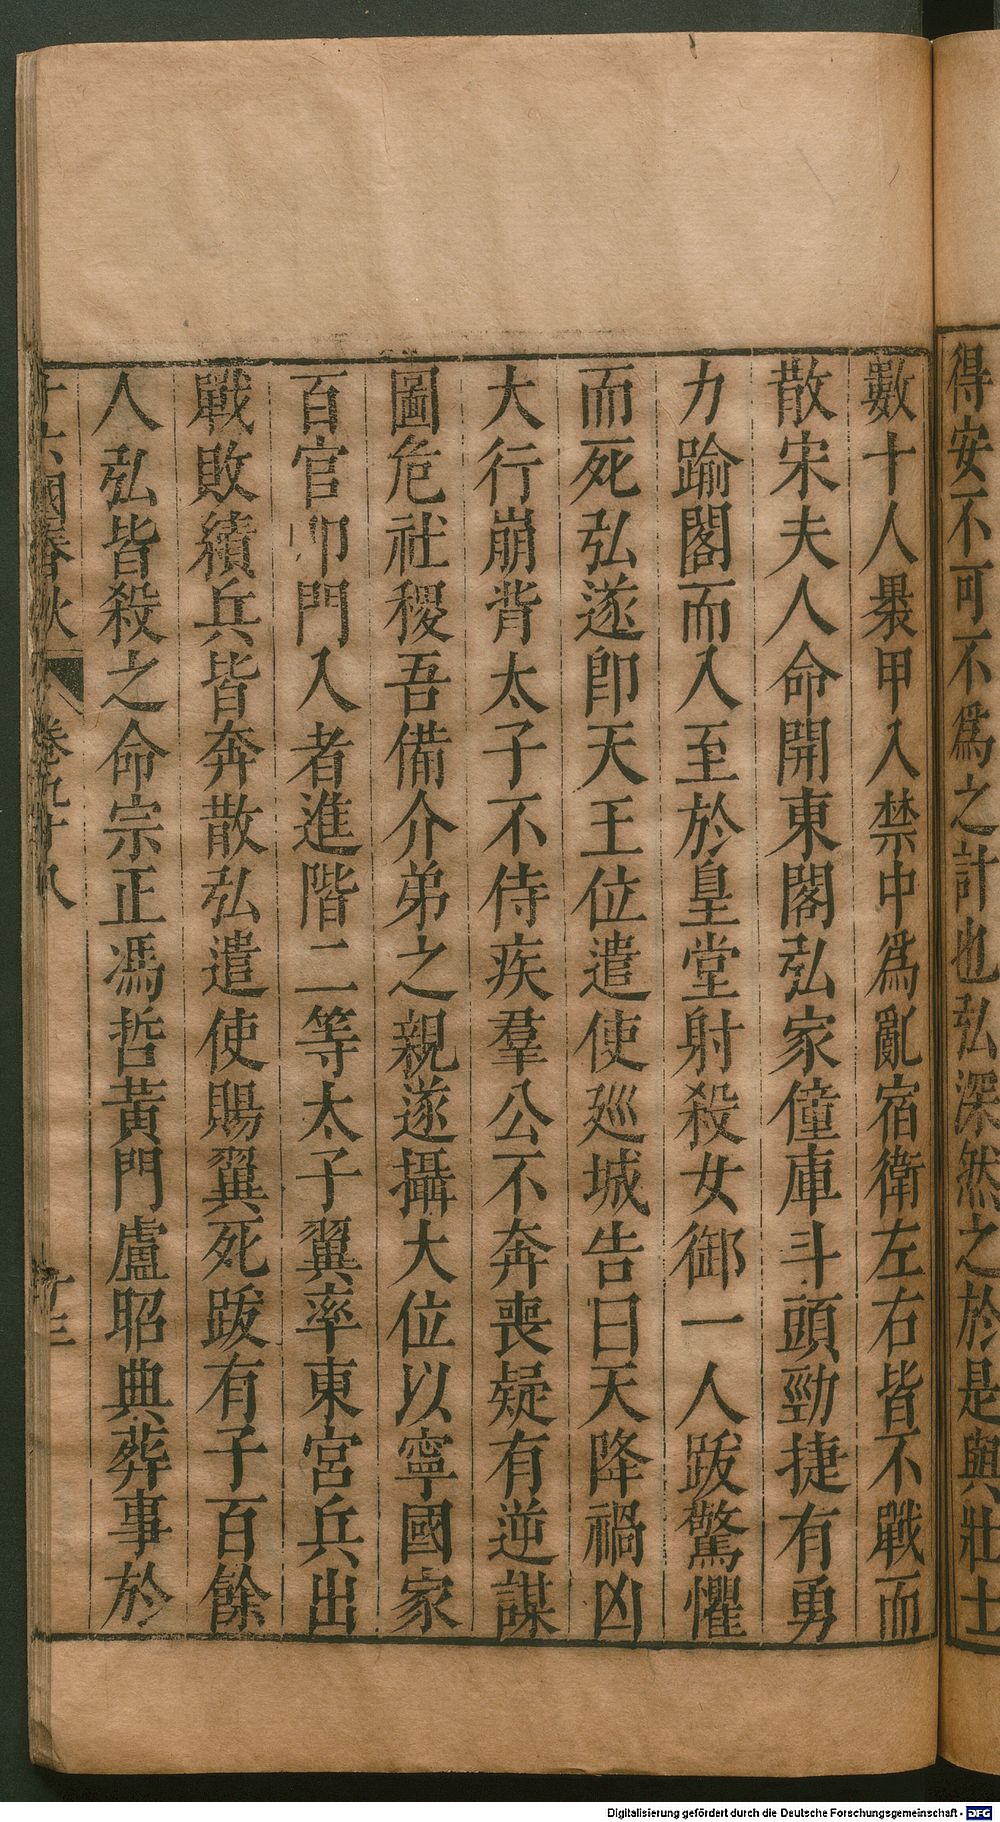 得安不可不爲之計也弘深然之於是與壯士
數十人䍜甲入禁中爲亂宿衛左右皆不戰而
散宋夫人命開東閣弘家僮庫斗頭勁捷有勇
力踰閣而入至於皇堂射殺女御一人跋驚懼
而死弘遂卽天王位遣使廵城告曰天降禍凶
大行崩背太子不侍疾羣公不奔喪疑有逆謀
圖危社稷吾備介弟之親遂攝大位以寧國家
百官叩門入者進階二等太子翼率東宮兵出
戰敗績兵皆奔散弘遣使賜翼死跋有子百餘
人弘皆殺之命宗正馮哲黃門盧昭典葬事於
十六國春秋 卷九十八 十三
Digitalisierung gefördert durch die Deutsche Forschungsgemeinschaft - DFG